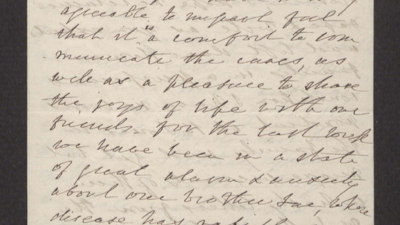 agreeable to impart but
that it "a comfort to com
municate the cares, as
well as a pleasure to share
the joys of life with our
friends. For the last week
we have been in a state
of great alarm & anxiety
about our brother
disease has